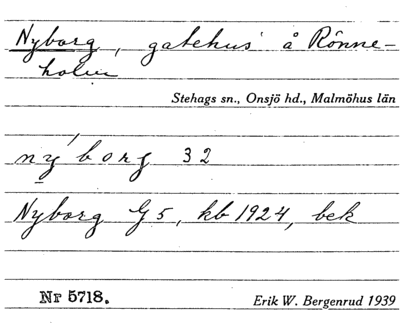 Nyborg, gatehus å Rönne-
holm
Stehags sn., Onsjö hd., Malmöhus län
nýborg 32
Nyborg G 5, kb 1924, bek
Nr 5718. Erik W. Bergenrud 1939